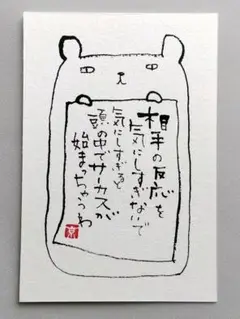 相手の反応を
気にしすぎないで
気にしすぎると
頭の中でサーカスが
始まっちゃうわ